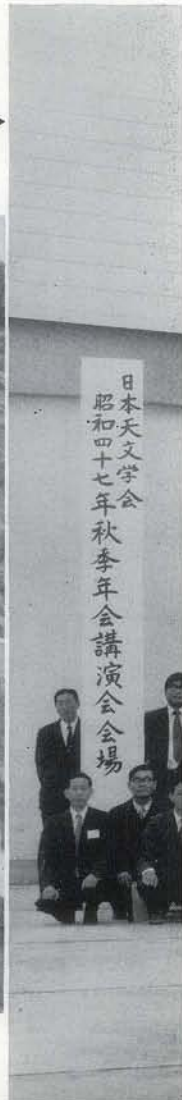 日本天文学会
昭和四十七年秋季年会講演会会場